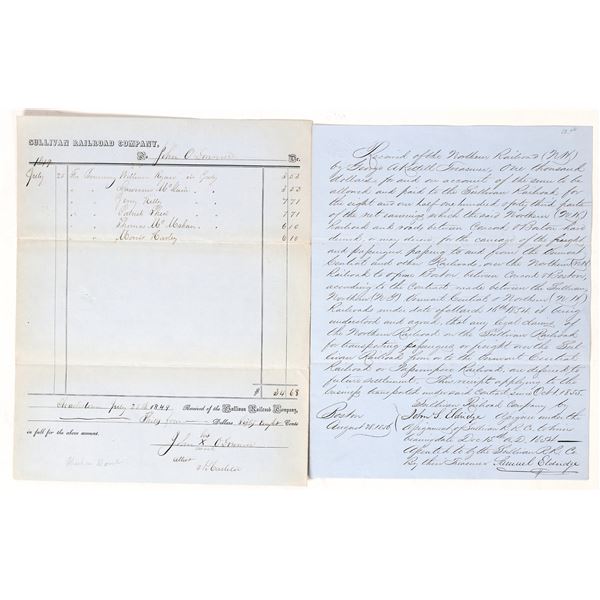 SULLIVAN RAILROAD COMPANY,
To John O'Connor Dr.
1849
July 25 To Boarding William Ryan in July 3 53
" Lawrence McLain " 3 53
" Jerry Kelly " 7 71
" Patrick Shea " 7 71
" Thomas McMahan " 6 10
" Moris Harley " 6 10
$ 34 68
Charlestown July 25th 1849 Received of the Sullivan Railroad Company,
Thirty four Dollars Sixty eight Cents
in full for the above amount.
his
John X O'Connor
mark
attest
Received of the Northern Railroad (N.H.)
by George A Kettell Treasurer, One thousand
dollars, paid on account of the sum to be
allowed and paid to the Sullivan Railroad, for
the eight and one half one hundred forty third parts
of the net earnings which the said Northern (N.H.)
Railroad and roads between Concord & Boston have
derived, or may derive for the carriage of the freight
and passengers passing to and from the Vermont
Central and other Railroads, over the Northern N.H.
Railroad to & from Boston between Concord & Boston,
according to the Contract made between the Sullivan,
Northern (N.H.) Vermont Central & Northern (N.H.)
Railroads under date of 1854, it being
understood and agreed, that any legal claims of
the Northern Railroad on the Sullivan Railroad
for transporting passengers or freight over the Sullivan
Railroad from or to the Vermont Central
Railroad or Passumpsic Railroad, are deferred to
future settlement. This receipt applying to the
business transported under said Contract since Oct 1 1855.
Sullivan Railroad Company by
Boston
August 28 1856
John S. Eldridge Assignee under the
Assignment of Sullivan R.R. Co to him
bearing date Dec 15th A.D. 1854
Assented to by the Sullivan R.R. Co
By their Treasurer Samuel Eldridge